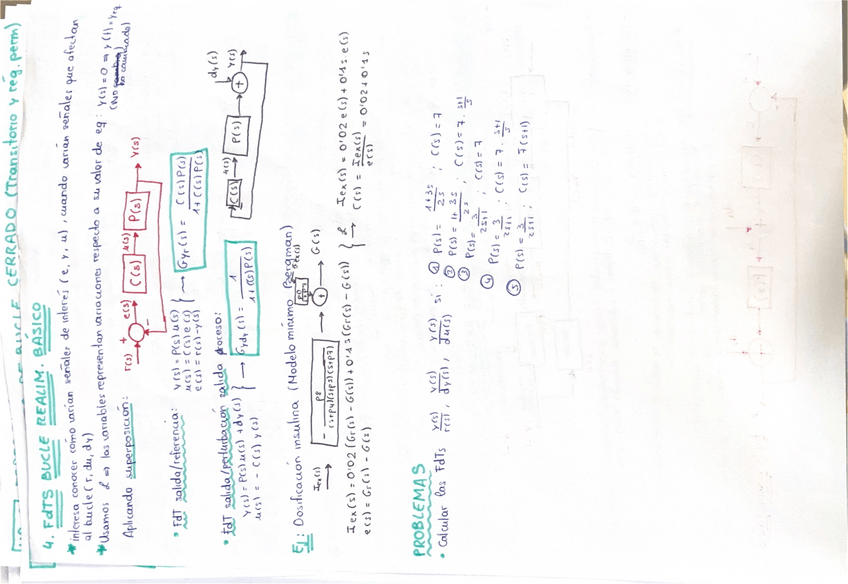 DE BUCLE CERRADO (Transitorio y reg. perm)
4. FdTS BUCLE REALIM. BÁSICO
* interesa conocer cómo varían señales de interés (e, y, u), cuando varían señales que afectan
al bucle (r, du, dy)
* Usamos L ⇒ las variables representan variaciones respecto a su valor de eq: Y(s) = 0 ⇒ y(t) = Yeq
(NO ha cambiado)
Aplicando superposición:
r(s) + e(s) C(s) u(s) P(s) Y(s)
-
• FdT salida/referencia:
Y(s) = P(s) u(s)
u(s) = C(s) e(s)
e(s) = r(s) - y(s)
} → Gyr(s) = C(s)P(s) / 1 + C(s)P(s)
• FdT salida/perturbación salida proceso:
Y(s) = P(s) u(s) + dy(s)
u(s) = - C(s) y(s)
} → Gydy(s) = 1 / 1 + C(s)P(s)
C(s) u(s) P(s) + dy(s) Y(s)
EJ: Dosificación insulina (Modelo mínimo Bergman)
Iex(s) → → + → G(s)
Iex(s) = 0'02 (Gr(s) - G(s)) + 0'1 s (Gr(s) - G(s))
e(s) = Gr(s) - G(s)
} L → Iex(s) = 0'02 e(s) + 0'1 s. e(s)
C(s) = Iex(s) / e(s) = 0'02 + 0'1 s
PROBLEMAS
• Calcular las FdTs y(s)/r(s), y(s)/dy(s), y(s)/du(s) si:
① P(s) = 1+3s / 2s ; C(s) = 7
② P(s) = 1+3s / 2s ; C(s) = 7 · s+1 / s
③ P(s) = 3 / 2s+1 ; C(s) = 7
④ P(s) = 3 / 2s+1 ; C(s) = 7 · s+1 / s
⑤ P(s) = 3 / 2s+1 ; C(s) = 7(s+1)